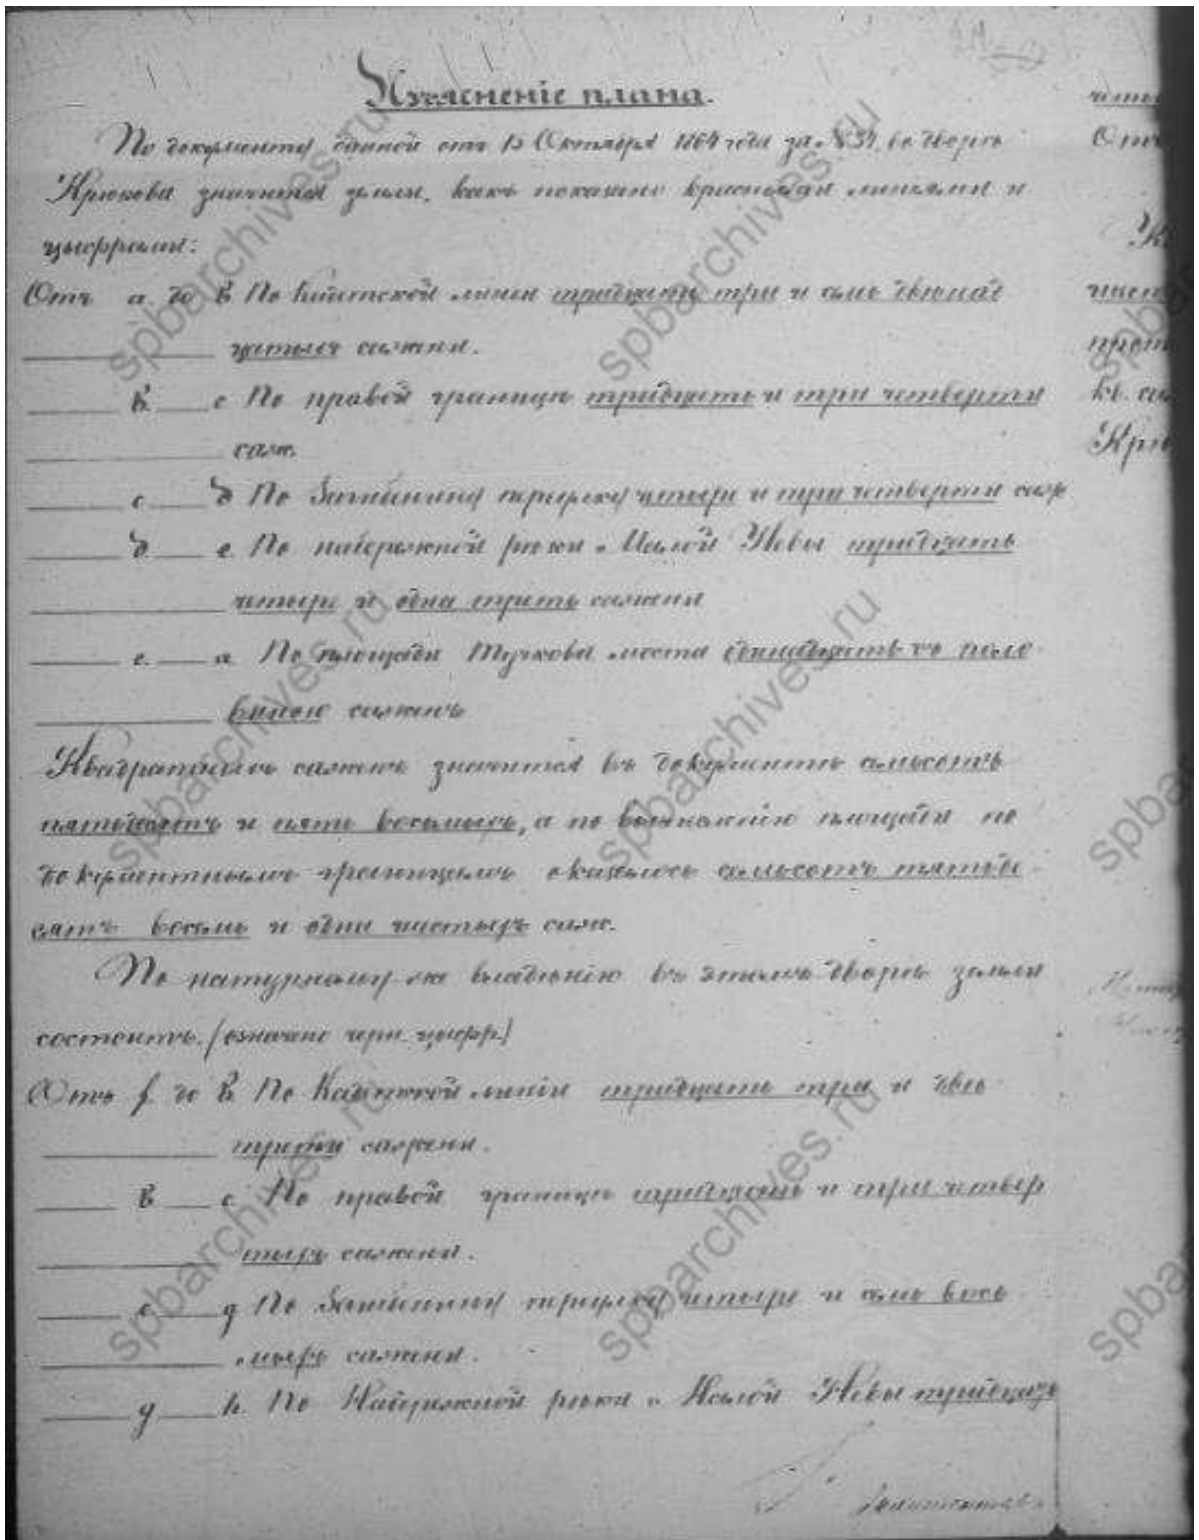 Изъясненіе плана.
По документу данной отъ 15 Октября 1864 года за №37, во дворѣ
Крюкова значится земли, какъ показано красными линіями и
цыфрами:
Отъ а. до В По Кадетской линіи тридцать три и семь двенад
цатыхъ сажени.
В. с По правой границѣ тридцать и три четверти
саж.
с d По переулку четыре и три четверти саж
d e. По набережной рѣки Малой Невы тридцать
четыре и одна треть сажени
e. а По площади Тучкова моста двенадцать съ поло
виною саженъ
Квадратныхъ саженъ значится въ документѣ семьсотъ
пятьдесятъ и пять восьмыхъ, а по вычисленію площади по
документнымъ границамъ оказалось семьсотъ пятьде
сятъ восемь и одна шестыхъ саж.
По натуральному же владѣнію въ этомъ дворѣ земли
состоитъ. (означено черн. цыфр.)
Отъ f. до В. По Кадетской линіи тридцать три и двѣ
трети сажени.
В с. По правой границѣ тридцать и три четвер
тыхъ сажени.
с g По переулку четыре и семь вось
мыхъ сажени.
g h. По Набережной рѣки Малой Невы тридцать
четы
Отъ
spbarchives.ru
spbarchives.ru
spbarchives.ru
spbarchives.ru
spbarchives.ru
spbarchives.ru